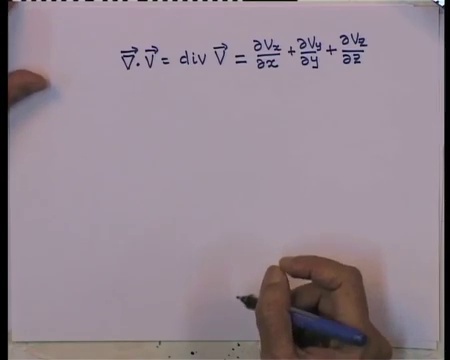 ∇⃗·V⃗ = div V⃗ = ∂Vx/∂x + ∂Vy/∂y + ∂Vz/∂z